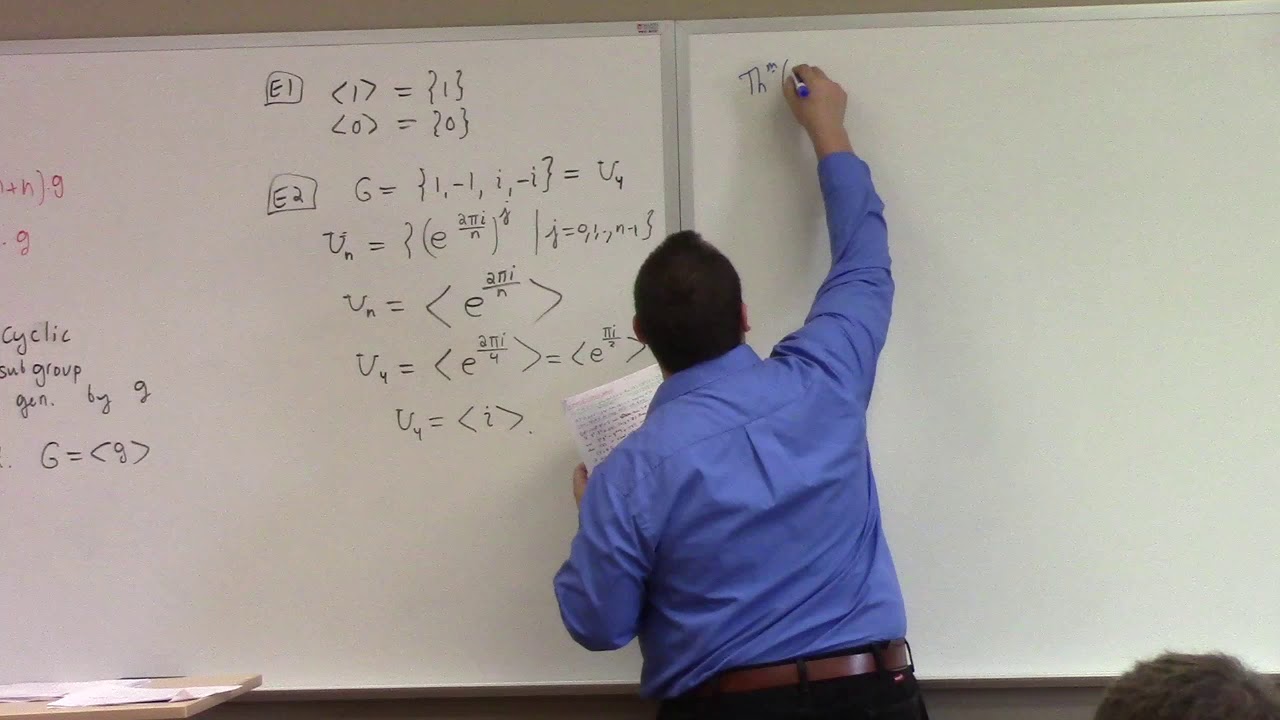 +n)·g
· g
Cyclic
subgroup
gen. by g
G = <g>
E1 <1> = {1}
<0> = {0}
E2 G = {1, -1, i, -i} = U₄
Uₙ = {(e^{2πi/n})^j | j=0,1,..,n-1}
Uₙ = < e^{2πi/n} >
U₄ = < e^{2πi/4} > = < e^{πi/2} >
U₄ = < i >.
Thᵐ (